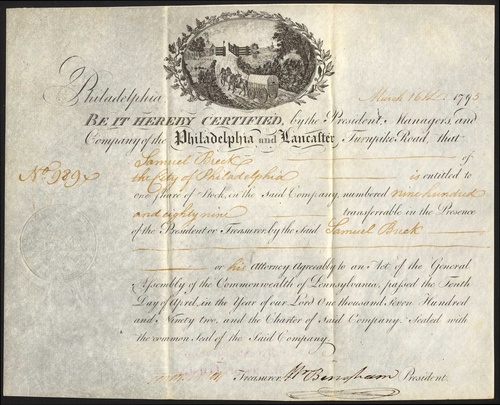 Philadelphia March 16th 1795
BE IT HEREBY CERTIFIED, by the President, Managers, and
Company of the Philadelphia and Lancaster Turnpike Road, that
Samuel Breck of
No. 989 the City of Philadelphia is entitled to
one Share of Stock, in the said Company, numbered nine hundred
and eighty nine transferrable in the Presence
of the President or Treasurer, by the Said Samuel Breck
or his Attorney. Agreeably to an Act of the General
Assembly of the Commonwealth of Pennsylvania, passed the Tenth
Day of April, in the Year of our Lord One thousand Seven Hundred
and Ninety two, and the Charter of Said Company, Sealed with
the common Seal of the Said Company.
Treasurer Wm Bingham President.